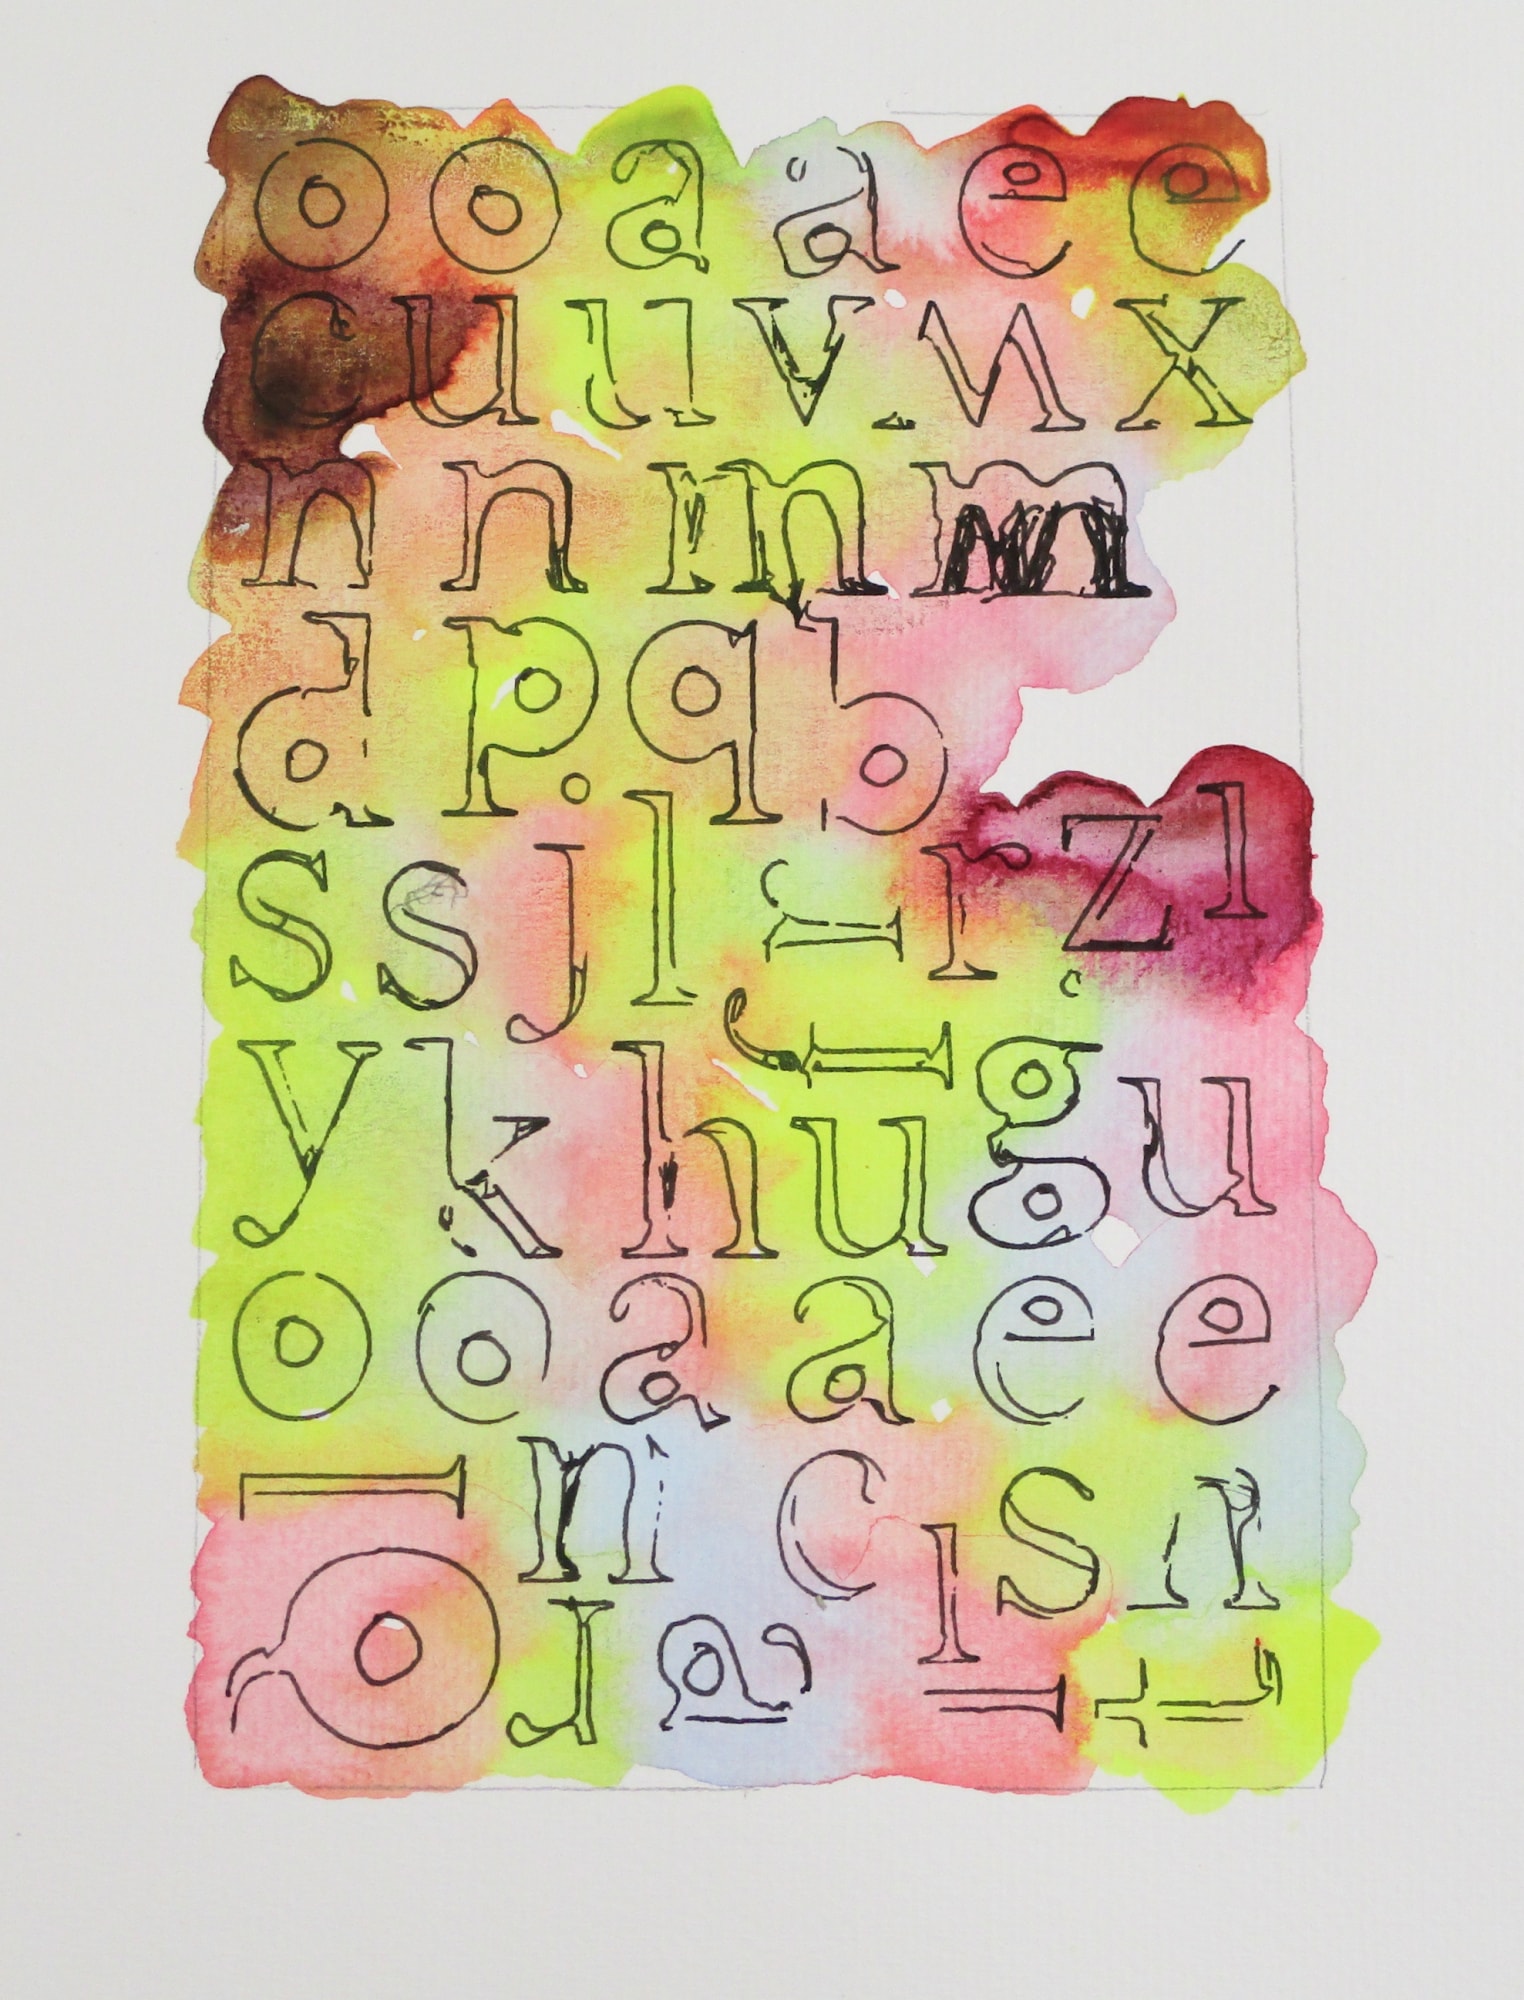 o o a a e e
c u u v w x
n n m m
d p q b
s s j l r z l
y k h u f g u
o o a a e e
l n c s n
l
j a t